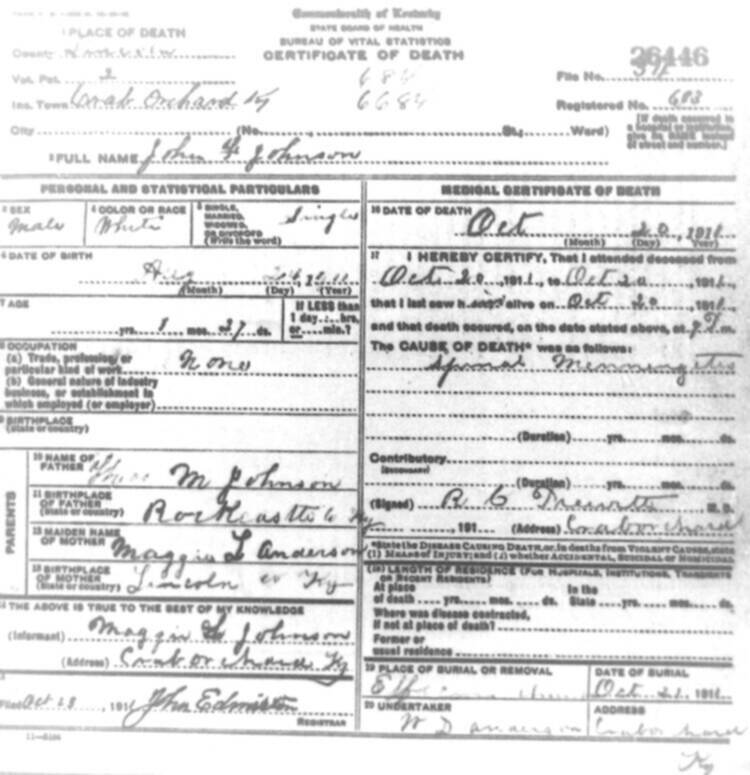 Commonwealth of Kentucky
STATE BOARD OF HEALTH
BUREAU OF VITAL STATISTICS
CERTIFICATE OF DEATH
1 PLACE OF DEATH
County
Vot. Pct. 2
Inc. Town Crab Orchard Ky
City (No. St.; Ward)
684
6684
26446
File No.
Registered No. 603
[If death occurred in
a hospital or institution,
give its NAME instead
of street and number.]
2 FULL NAME John F Johnson
PERSONAL AND STATISTICAL PARTICULARS
3 SEX
Male
4 COLOR OR RACE
White
5 SINGLE,
MARRIED,
WIDOWED,
OR DIVORCED
(Write the word)
Single
6 DATE OF BIRTH
Aug
(Month) (Day) (Year)
7 AGE
yrs. 1 mos. 27 ds.
If LESS than
1 day....hrs.
or....min.?
8 OCCUPATION
(a) Trade, profession, or
particular kind of work None
(b) General nature of industry
business, or establishment in
which employed (or employer)
9 BIRTHPLACE
(State or country)
PARENTS
10 NAME OF
FATHER M Johnson
11 BIRTHPLACE
OF FATHER
(State or country) Rockcastle Co Ky
12 MAIDEN NAME
OF MOTHER Maggie L Anderson
13 BIRTHPLACE
OF MOTHER
(State or country) Lincoln co Ky
14 THE ABOVE IS TRUE TO THE BEST OF MY KNOWLEDGE
(Informant) Maggie L Johnson
(Address) Crab orchard Ky
Filed Oct 28, 1911 John Edmiston
REGISTRAR
11-5184
MEDICAL CERTIFICATE OF DEATH
16 DATE OF DEATH
Oct 20, 1911
(Month) (Day) (Year)
17 I HEREBY CERTIFY, That I attended deceased from
Oct 20, 1911, to Oct 20, 1911,
that I last saw h alive on Oct 20, 1911,
and that death occured, on the date stated above, at m.
The CAUSE OF DEATH* was as follows:
Spinal Menningetis
(Duration) yrs. mos. ds.
Contributory
(SECONDARY)
(Duration) yrs. mos. ds.
(Signed) R C Trewitt M. D.
, 191 (Address) Crab orchard
*State the DISEASE CAUSING DEATH, or, in deaths from VIOLENT CAUSES, state
(1) MEANS OF INJURY; and (2) whether ACCIDENTAL, SUICIDAL or HOMICIDAL
(18) LENGTH OF RESIDENCE (FOR HOSPITALS, INSTITUTIONS, TRANSIENTS
OR RECENT RESIDENTS.)
At place
of death yrs. mos. ds.
In the
State yrs. mos. ds.
Where was disease contracted,
if not at place of death?
Former or
usual residence
19 PLACE OF BURIAL OR REMOVAL
DATE OF BURIAL
Oct 21, 1911
20 UNDERTAKER
W D anderson
ADDRESS
Crab orchard
Ky